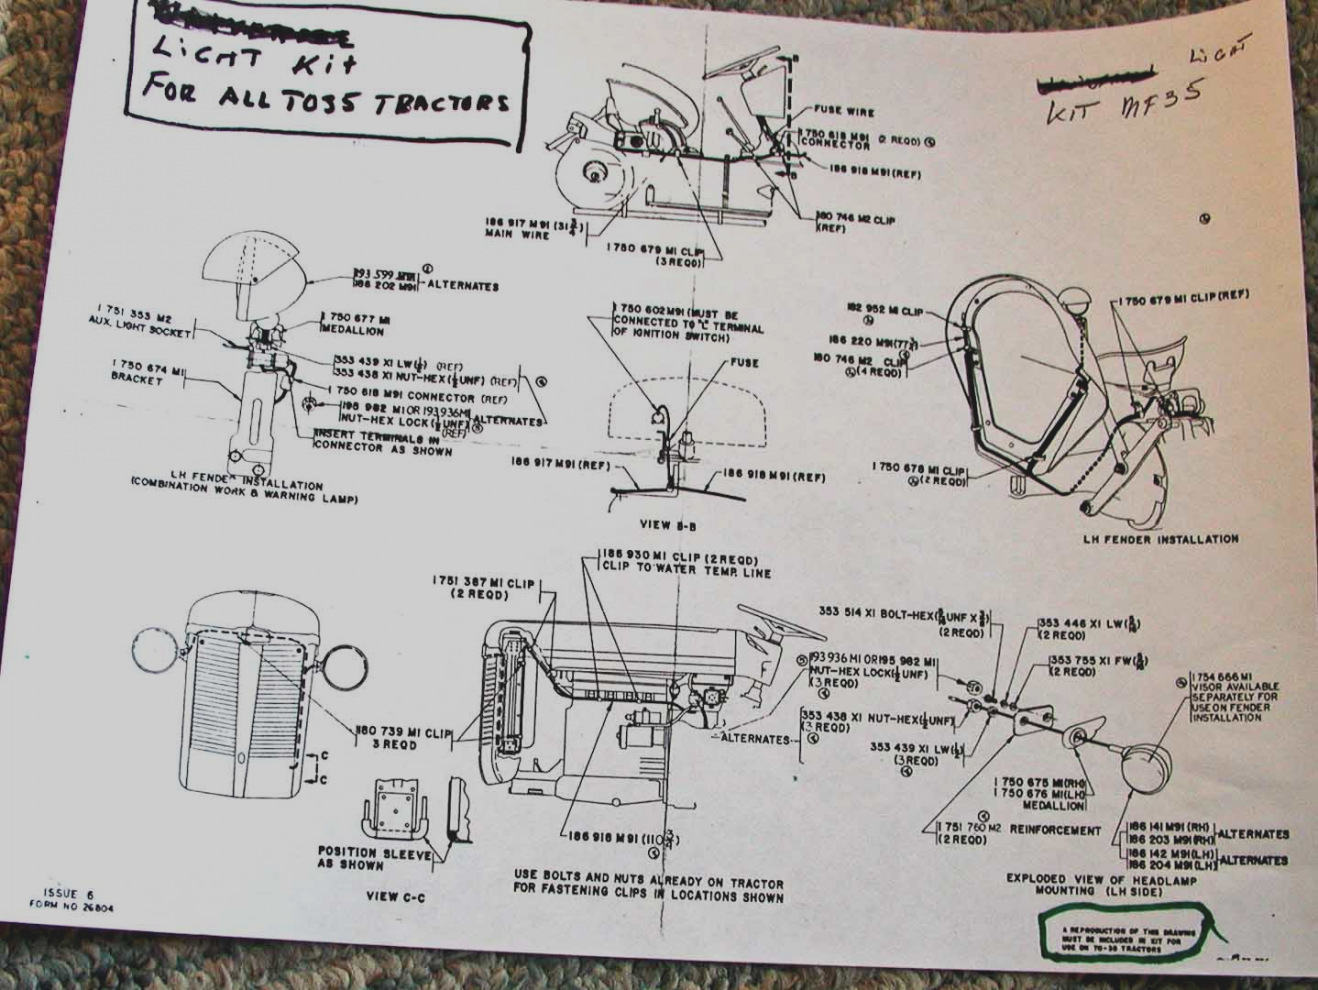 LIGHT KIT
FOR ALL TO35 TRACTORS
LIGHT
KIT MF35
FUSE WIRE
1 750 618 M91 (2 REQD)
CONNECTOR
186 918 M91 (REF)
180 746 M2 CLIP
(REF)
186 917 M91 (31 3/4)
MAIN WIRE
1 750 679 M1 CLIP
(3 REQD)
193 599
186 202 M91
ALTERNATES
1 751 353 M2
AUX. LIGHT SOCKET
1 750 677 M1
MEDALLION
353 439 X1 LW(1/2) (REF)
353 438 X1 NUT-HEX(1/2UNF) (REF)
1 750 674 M1
BRACKET
1 750 618 M91 CONNECTOR (REF)
195 982 M1 OR 193 936 M1
NUT-HEX LOCK(1/2UNF)
(REF)
ALTERNATES
INSERT TERMINALS IN
CONNECTOR AS SHOWN
LH FENDER INSTALLATION
(COMBINATION WORK & WARNING LAMP)
1 750 602 M91 (MUST BE
CONNECTED TO "L" TERMINAL
OF IGNITION SWITCH)
FUSE
186 917 M91 (REF)
186 918 M91 (REF)
VIEW B-B
182 952 M1 CLIP
186 220 M91
180 746 M2 CLIP
(4 REQD)
1 750 679 M1 CLIP (REF)
1 750 678 M1 CLIP
(2 REQD)
LH FENDER INSTALLATION
186 930 M1 CLIP (2 REQD)
CLIP TO WATER TEMP. LINE
1 751 387 M1 CLIP
(2 REQD)
180 739 M1 CLIP
3 REQD
C
C
POSITION SLEEVE
AS SHOWN
VIEW C-C
186 918 M91
USE BOLTS AND NUTS ALREADY ON TRACTOR
FOR FASTENING CLIPS IN LOCATIONS SHOWN
353 514 X1 BOLT-HEX
(2 REQD)
353 446 X1 LW(5/16)
(2 REQD)
353 755 X1 FW(5/16)
(2 REQD)
193 936 M1 OR 195 982 M1
NUT-HEX LOCK(1/2UNF)
(3 REQD)
353 438 X1 NUT-HEX(1/2UNF)
(3 REQD)
ALTERNATES
353 439 X1 LW(1/2)
(3 REQD)
1 754 666 M1
VISOR AVAILABLE
SEPARATELY FOR
USE ON FENDER
INSTALLATION
1 750 675 M1(RH)
1 750 676 M1(LH)
MEDALLION
1 751 760 M2 REINFORCEMENT
(2 REQD)
186 141 M91 (RH)
186 203 M91 (RH)
ALTERNATES
186 142 M91 (LH)
186 204 M91 (LH)
ALTERNATES
EXPLODED VIEW OF HEADLAMP
MOUNTING (LH SIDE)
ISSUE 6
FORM NO 26804
A REPRODUCTION OF THIS DRAWING
MUST BE INCLUDED IN KIT FOR
USE ON TO-35 TRACTORS